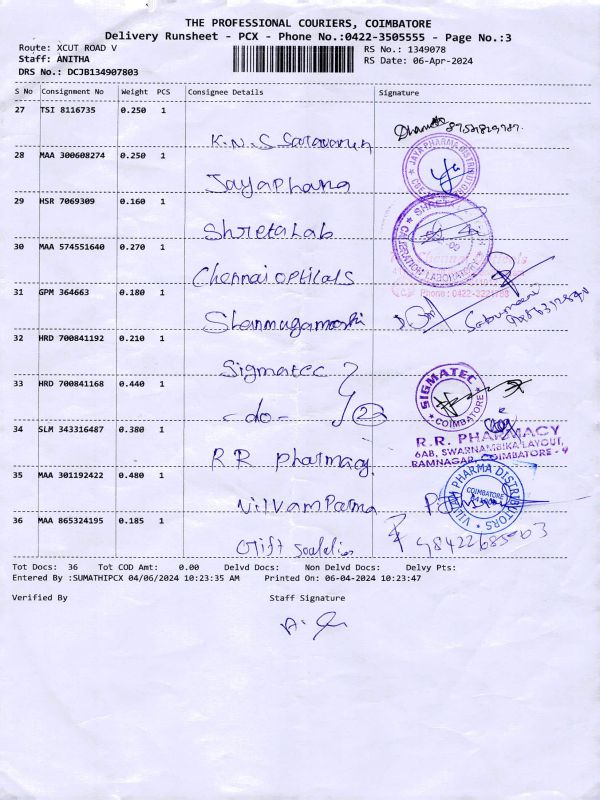 THE PROFESSIONAL COURIERS, COIMBATORE
Delivery Runsheet - PCX - Phone No.:0422-3505555 - Page No.:3
Route: XCUT ROAD V
RS No.: 1349078
Staff: ANITHA
RS Date: 06-Apr-2024
DRS No.: DCJB134907803
S No Consignment No Weight PCS Consignee Details Signature
27 TSI 8116735 0.250 1
K.N.S Saravanan
28 MAA 300608274 0.250 1
Jayapharma
JAYA PHARMA DISTRI
29 HSR 7069309 0.160 1
Shreta Lab
SHRETA
30 MAA 574551640 0.270 1
Chennai opticals
Phone: 0422-
31 GPM 364663 0.180 1
32 HRD 700841192 0.210 1
Sigmatec
33 HRD 700841168 0.440 1
-do- 22
SIGMATEC
COIMBATORE
34 SLM 343316487 0.380 1
R.R pharmacy
R.R. PHARMACY
6AB, SWARNAMBIKA LAYOUT,
RAMNAGAR, COIMBATORE - 9
35 MAA 301192422 0.480 1
PHARMA DISTRIBUTORS
COIMBATORE
36 MAA 865324195 0.185 1
Gift
Tot Docs: 36 Tot COD Amt: 0.00 Delvd Docs: Non Delvd Docs: Delvy Pts:
Entered By :SUMATHIPCX 04/06/2024 10:23:35 AM Printed On: 06-04-2024 10:23:47
Verified By Staff Signature